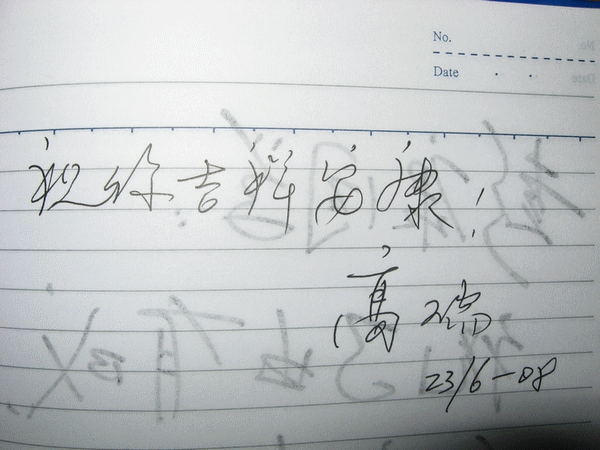 No.
Date
祝你吉祥安康!
高瑞
23/6-08